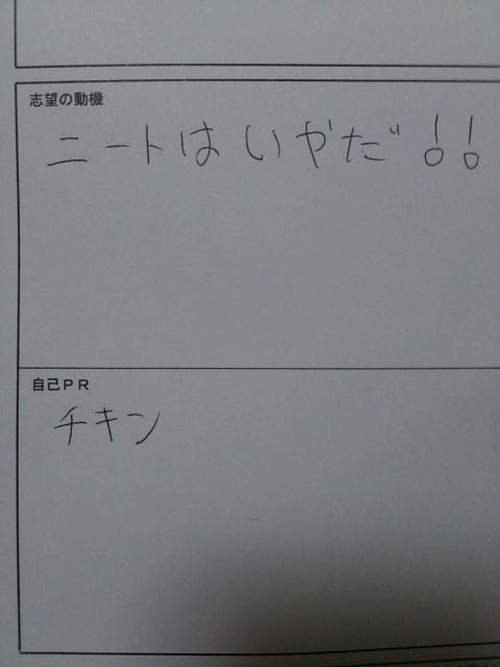 志望の動機
ニートはいやだ!!
自己PR
チキン